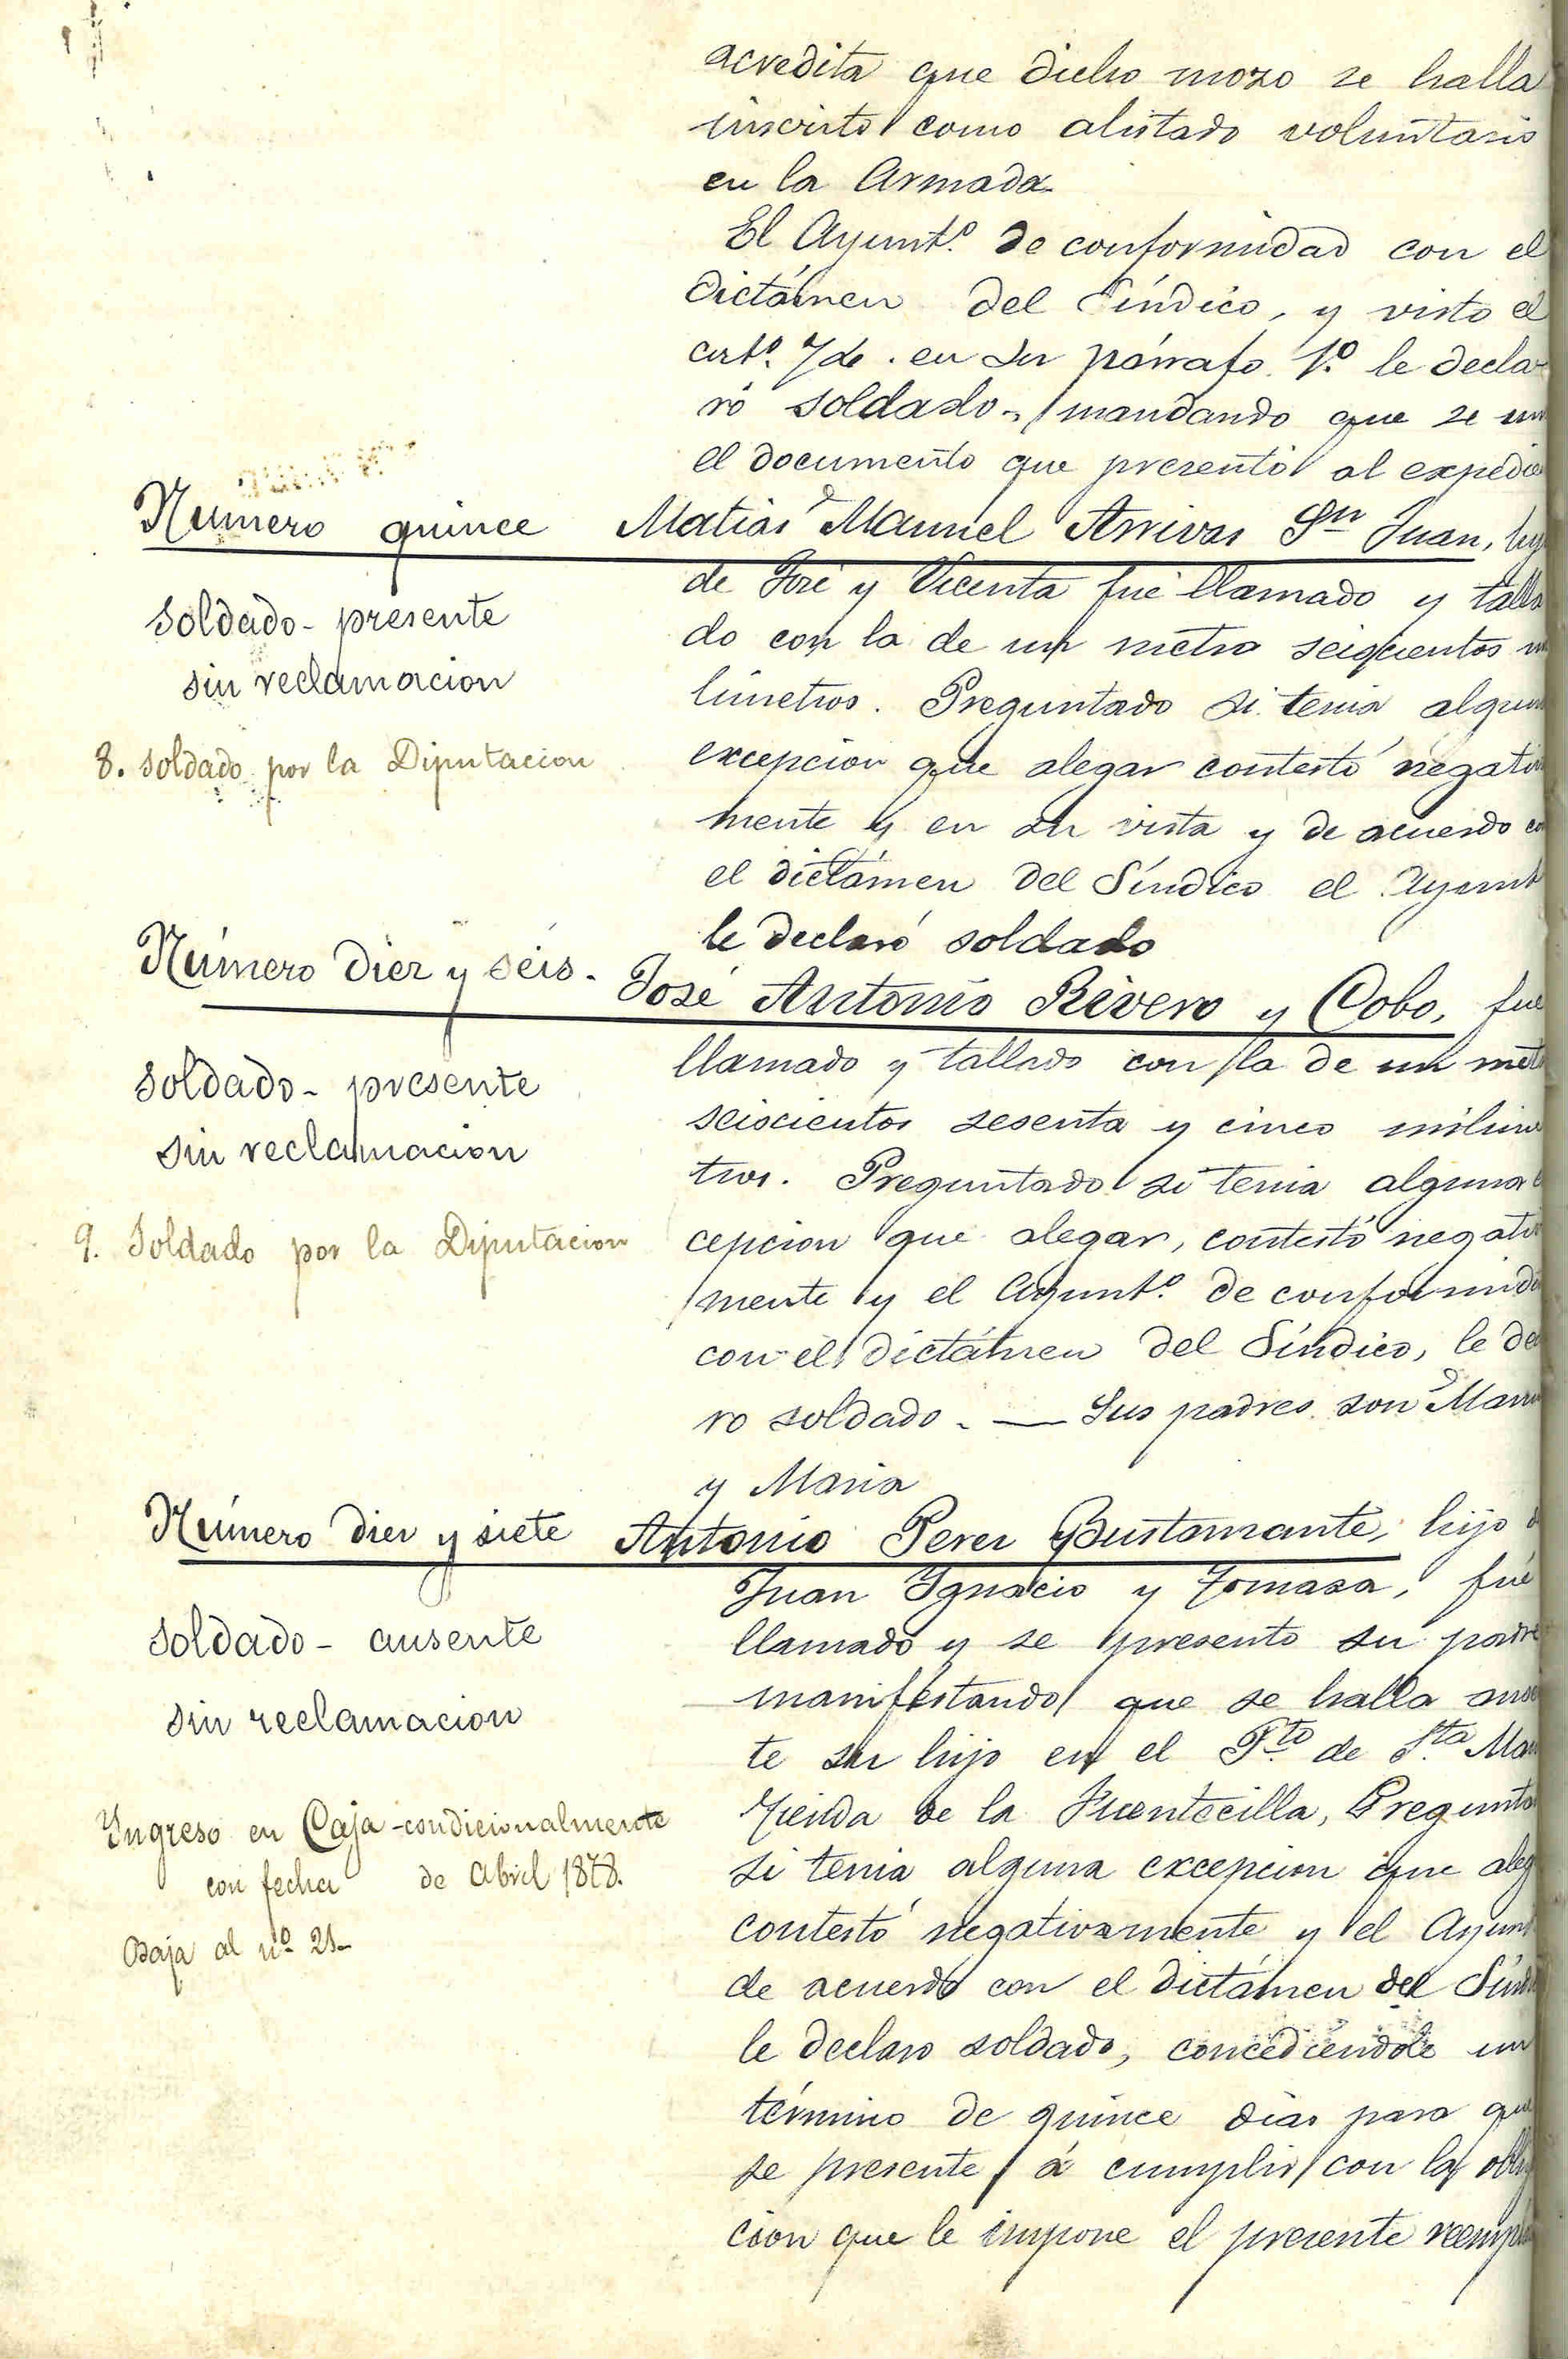 acredita que dicho mozo se halla
inscrito como alistado voluntario
en la Armada.
El Ayunt.º de conformidad con el
dictámen del Síndico, y visto el
art.º en su párrafo 1.º le decla
ró soldado, mandando que se un
el documento que presentó al expedie
Número quince
Matias Manuel Arrivas Sn Juan, hij
de José y Vicenta fué llamado y talla
do con la de un metro seiscientos mi
límetros. Preguntado si tenia algun
excepcion que alegar contestó negativ
mente y en su vista y de acuerdo con
el dictámen del Síndico el Ayunt
le declaró soldado
Soldado - presente
sin reclamacion
8. Soldado por la Diputacion
Número diez y seis -
José Antonio Rivero y Cobo, fué
llamado y tallado con la de un met
seiscientos sesenta y cinco milíme
tros. Preguntado si tenia alguna e
cepcion que alegar, contestó negativ
mente y el Ayunt.º de conformida
con el dictámen del Síndico, le de
ro soldado. — Sus padres son Manu
y Maria
Soldado - presente
sin reclamacion
9. Soldado por la Diputacion
Número diez y siete
Antonio Perez Bustamante, hijo d
Juan Ignacio y Tomasa, fué
llamado y se presento su padre
manifestando que se halla ausen
te su hijo en el Pto de Sta Mar
tienda de la Fuentecilla, Pregunta
si tenia alguna excepcion que aleg
contestó negativamente y el Ayunt
de acuerdo con el dictámen del Síndi
le declaro soldado, concediéndole un
término de quince dias para que
se presente á cumplir con la oblig
cion que le impone el presente reempla
Soldado - ausente
sin reclamacion
Ingreso en Caja condicionalmente
con fecha de Abril 1878.
Baja al nº 21-